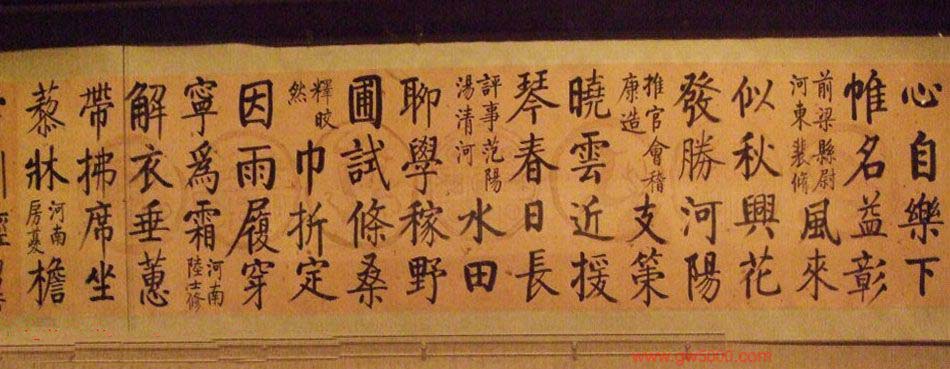 心自樂下
帷名益彰
前梁縣尉
河東裴脩
風來
似秋興花
發勝河陽
推官會稽
康造
支策
曉雲近援
琴春日長
評事范陽
湯清河
水田
聊學稼野
圃試條桑
釋皎
然
巾折定
因雨履穿
寧爲霜
河南
陸士修
解衣垂蕙
帶拂席坐
藜牀
河南
房夔
檐
www.gw5000.com